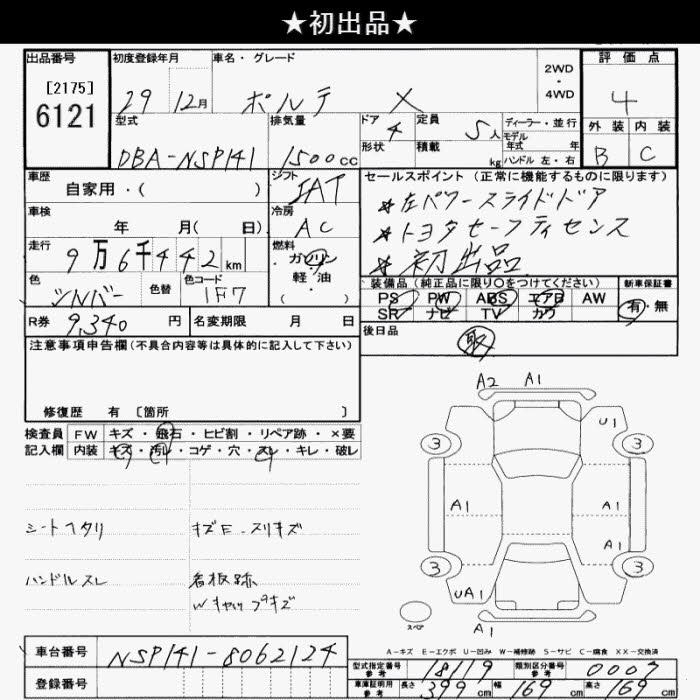 ★初出品★
出品番号
[2175]
6121
初度登録年月
29 12月
車名・グレード
ポルテ X
2WD
・
4WD
評価点
4
外装 内装
B C
型式
DBA-NSP141
排気量
1500cc
ドア 4
形状
定員 5人
積載 kg
ディーラー・並行
モデル
年式 年
ハンドル 左・右
車歴
自家用・( )
シフト
IAT
車検
年 月( 日)
冷房
AC
走行
9万6千442km
燃料
ガソリン
軽・油
色
シルバー
色替
色コード
1F7
セールスポイント(正常に機能するものに限ります)
★左パワースライドドア
★トヨタセーフティセンス
★初出品
装備品(純正品に限り○をつけてください)
PS PW ABS エアB AW
SR ナビ TV カワ
新車保証書
有・無
R券 9,340 円
名変期限 月 日
後日品
取
注意事項申告欄(不具合内容等は具体的に記入して下さい)
修復歴 有 〔箇所 〕
検査員
記入欄
FW キズ・飛石・ヒビ割・リペア跡・×要
内装 キズ・汚レ・コゲ・穴・スレ・キレ・破レ
シートヘタリ
キズE・スリキズ
ハンドルスレ
看板跡
Wキャップキズ
A2 A1
U1
3 3
A1 A1
A1
3 3
UA1 A1
スペア
A1
A-キズ E-エクボ U-凹み W-補修跡 S-サビ C-腐食 XX-交換済
車台番号
NSP141-8062124
登録番号
型式指定番号
参考
18119
類別区分番号
参考
0007
車庫証明用
参考
長さ 399cm 幅 169cm 高さ 169cm